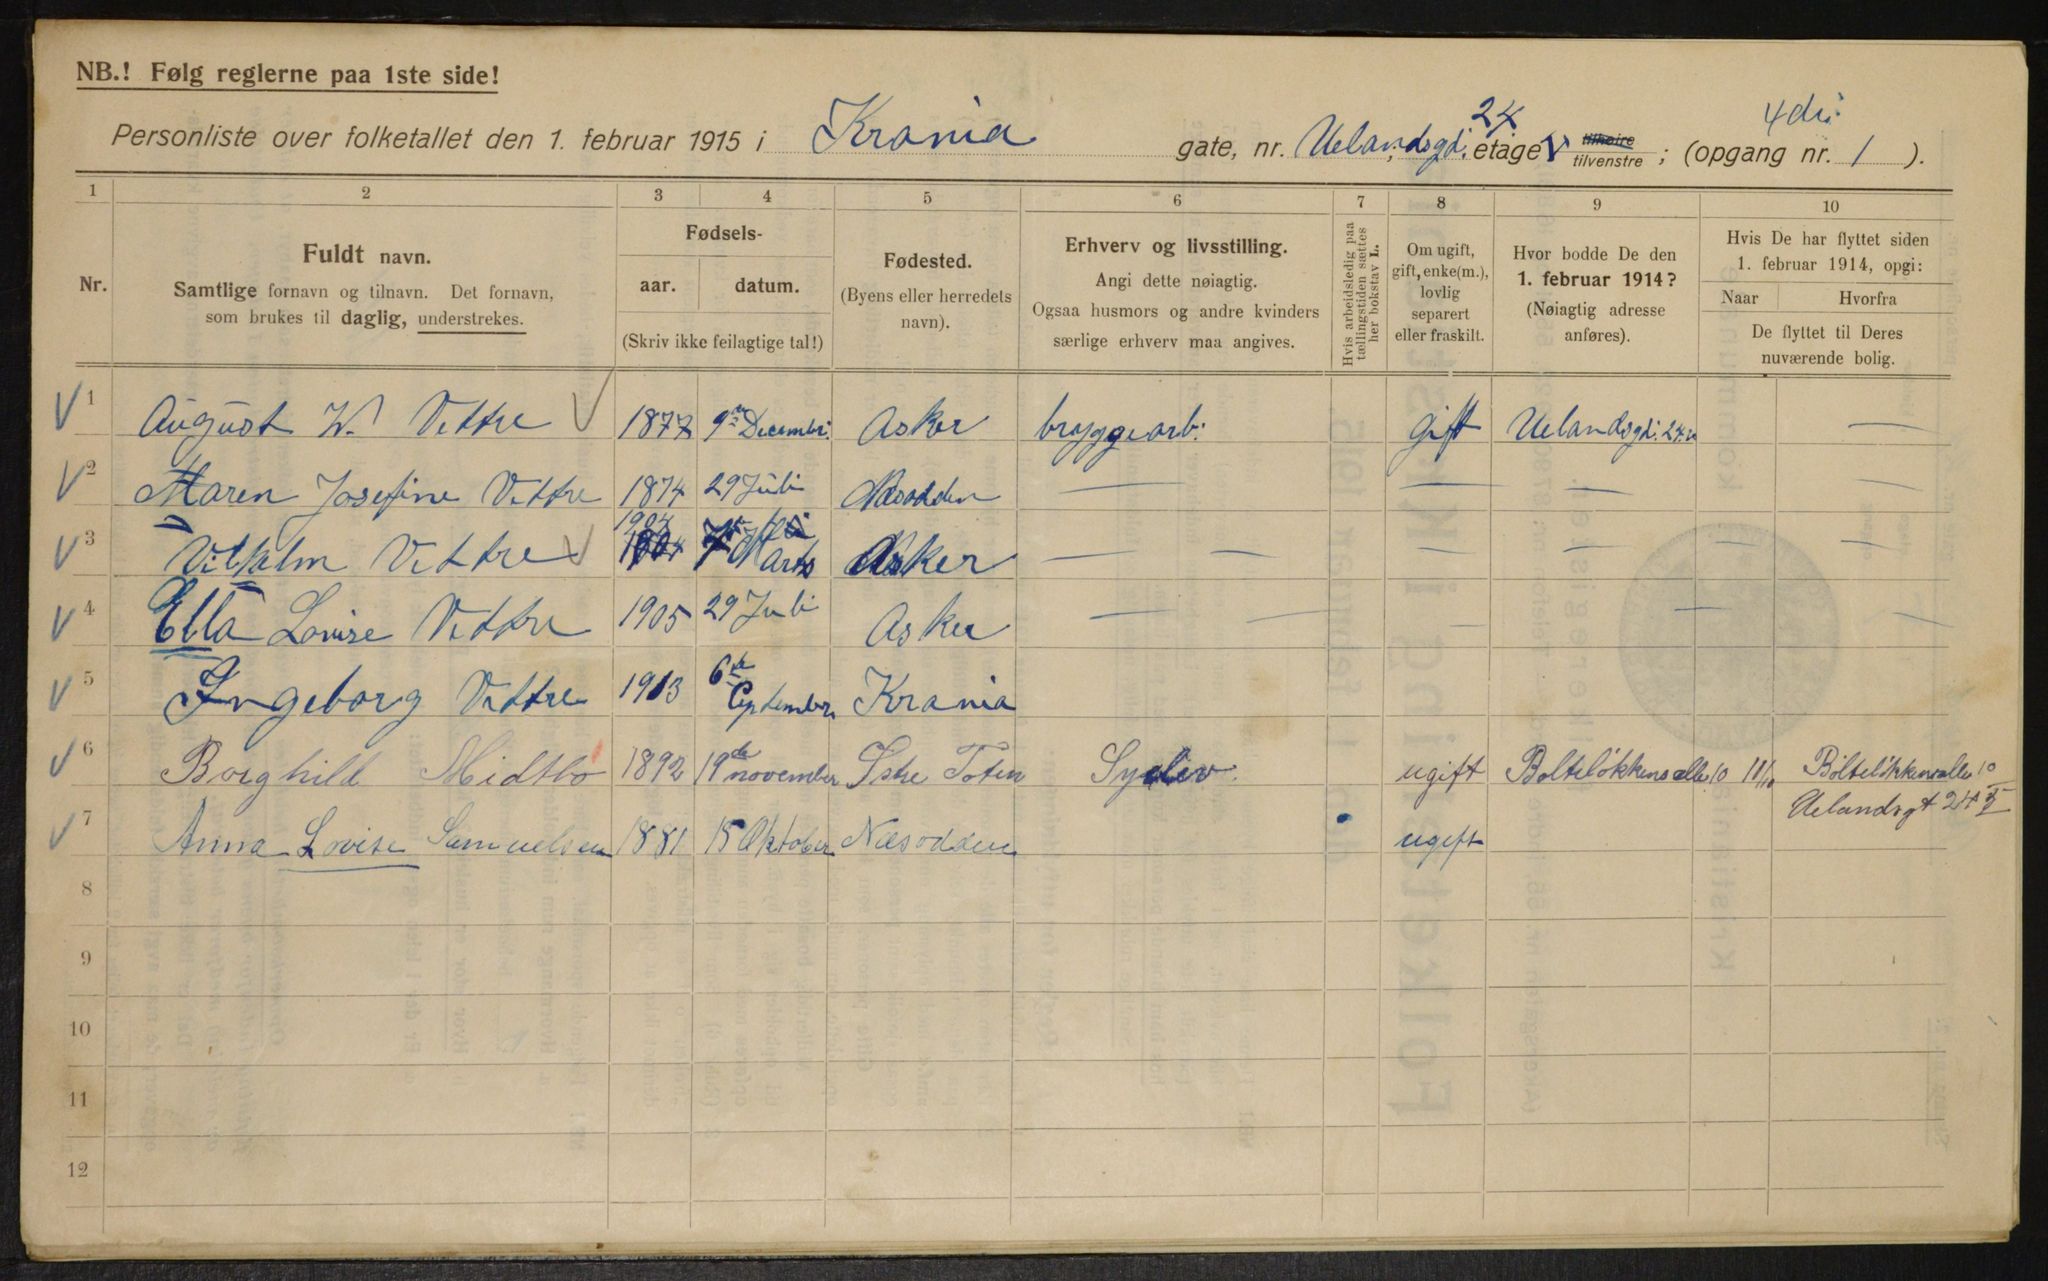 NB.! Følg reglerne paa 1ste side!
Personliste over folketallet den 1. februar 1915 i Krania gate, nr. Uelandsgd. 24 etage V tilhøire tilvenstre ; (opgang nr. 1 ).
1 2 3 4 5 6 7 8 9 10
Nr.
Fuldt navn.
Samtlige fornavn og tilnavn. Det fornavn,
som brukes til daglig, understrekes.
Fødsels-
aar. datum.
(Skriv ikke feilagtige tal!)
Fødested.
(Byens eller herredets
navn).
Erhverv og livsstilling.
Angi dette nøiagtig.
Ogsaa husmors og andre kvinders
særlige erhverv maa angives.
Hvis arbeidsledig paa
tællingstiden sættes
her bokstav L.
Om ugift,
gift, enke(m.),
lovlig
separert
eller fraskilt.
Hvor bodde De den
1. februar 1914?
(Nøiagtig adresse
anføres).
Hvis De har flyttet siden
1. februar 1914, opgi:
Naar Hvorfra
De flyttet til Deres
nuværende bolig.
1 August W. Vettre 1877 9de Decembr. Asker bryggearb. gift Uelandsgd. 24 —
2 Maren Josefine Vettre 1874 29 Juli Næsodden — — — — —
3 Vilhelm Vettre 1904 Marts Asker — — — — — —
4 Ella Lovise Vettre 1905 29 Juli Asker — — — — —
5 Ingeborg Vettre 1913 6te September Krania
6 Borghild Midtbø 1892 19de november Østre Toten Syelev ugift Bolteløkkens alle 10 Bolteløkkens alle 10
Uelandsgt 24
7 Anna Lovise Samuelsen 1881 15 Oktober Næsodden ugift
8
9
10
11
12